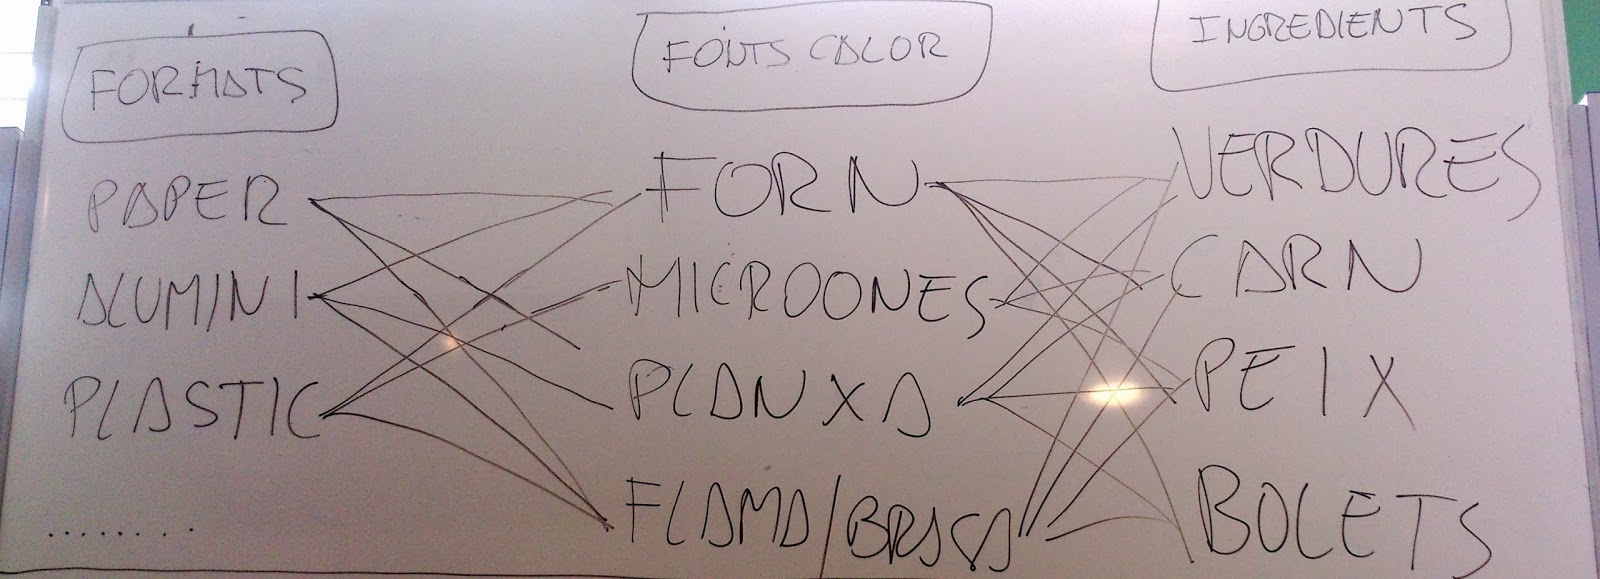 FORMATS
PAPER
ALUMINI
PLASTIC
........
FONTS CALOR
FORN
MICROONES
PLANXA
FLAMA/BRASA
INGREDIENTS
VERDURES
CARN
PEIX
BOLETS